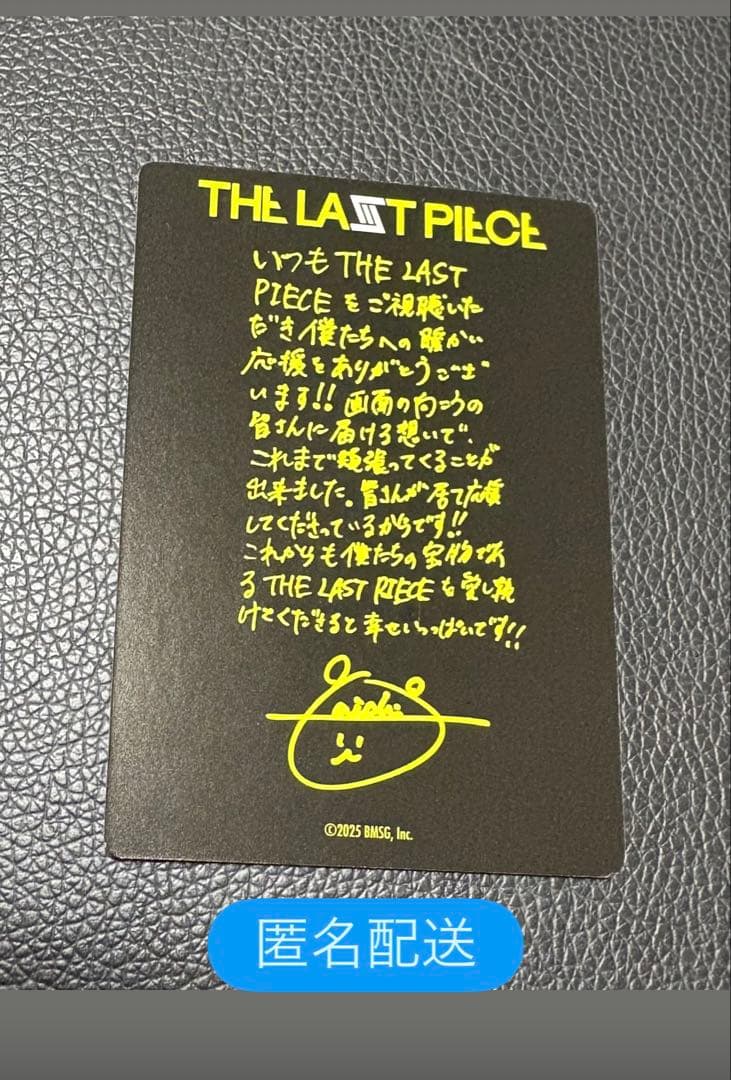 THE LAST PIECE
いつも THE LAST
PIECE をご視聴いた
だき僕たちへの暖かい
応援をありがとうござ
います!! 画面の向こうの
皆さんに届ける想いで、
これまで頑張ってくることが
出来ました。皆さんが居て応援
してくださっているからです!!
これからも僕たちの宝物であ
る THE LAST PIECE を愛し続
けてくださると幸せいっぱいです!!
©2025 BMSG, Inc.
匿名配送